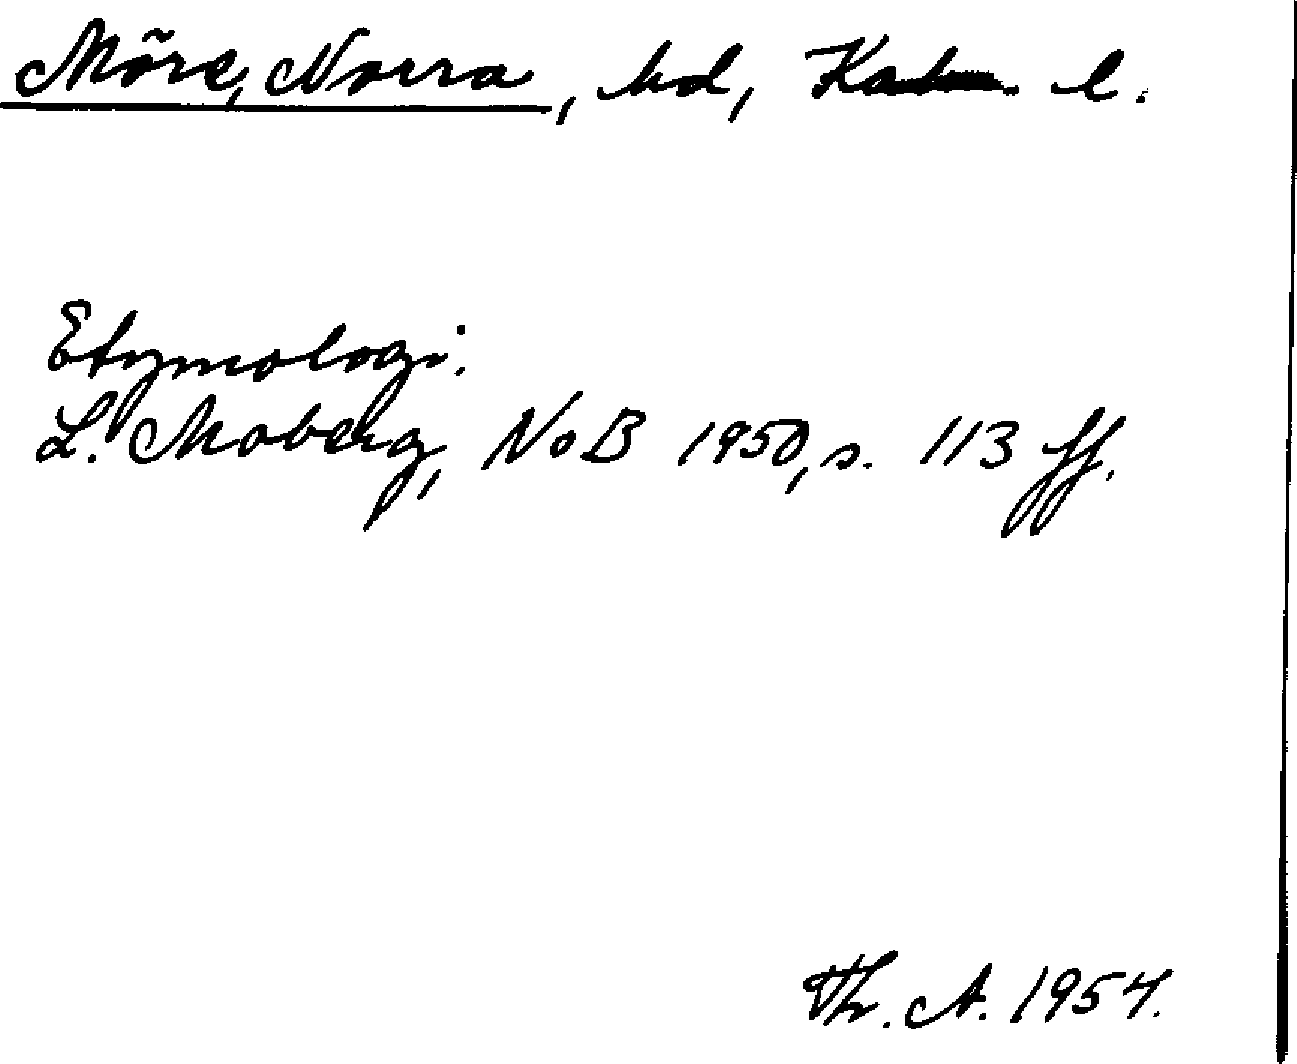 Möre, Norra, hd, Kalm. l.
Etymologi.
L. Moberg, NoB 1950, s. 113 ff.
Th. A. 1954.